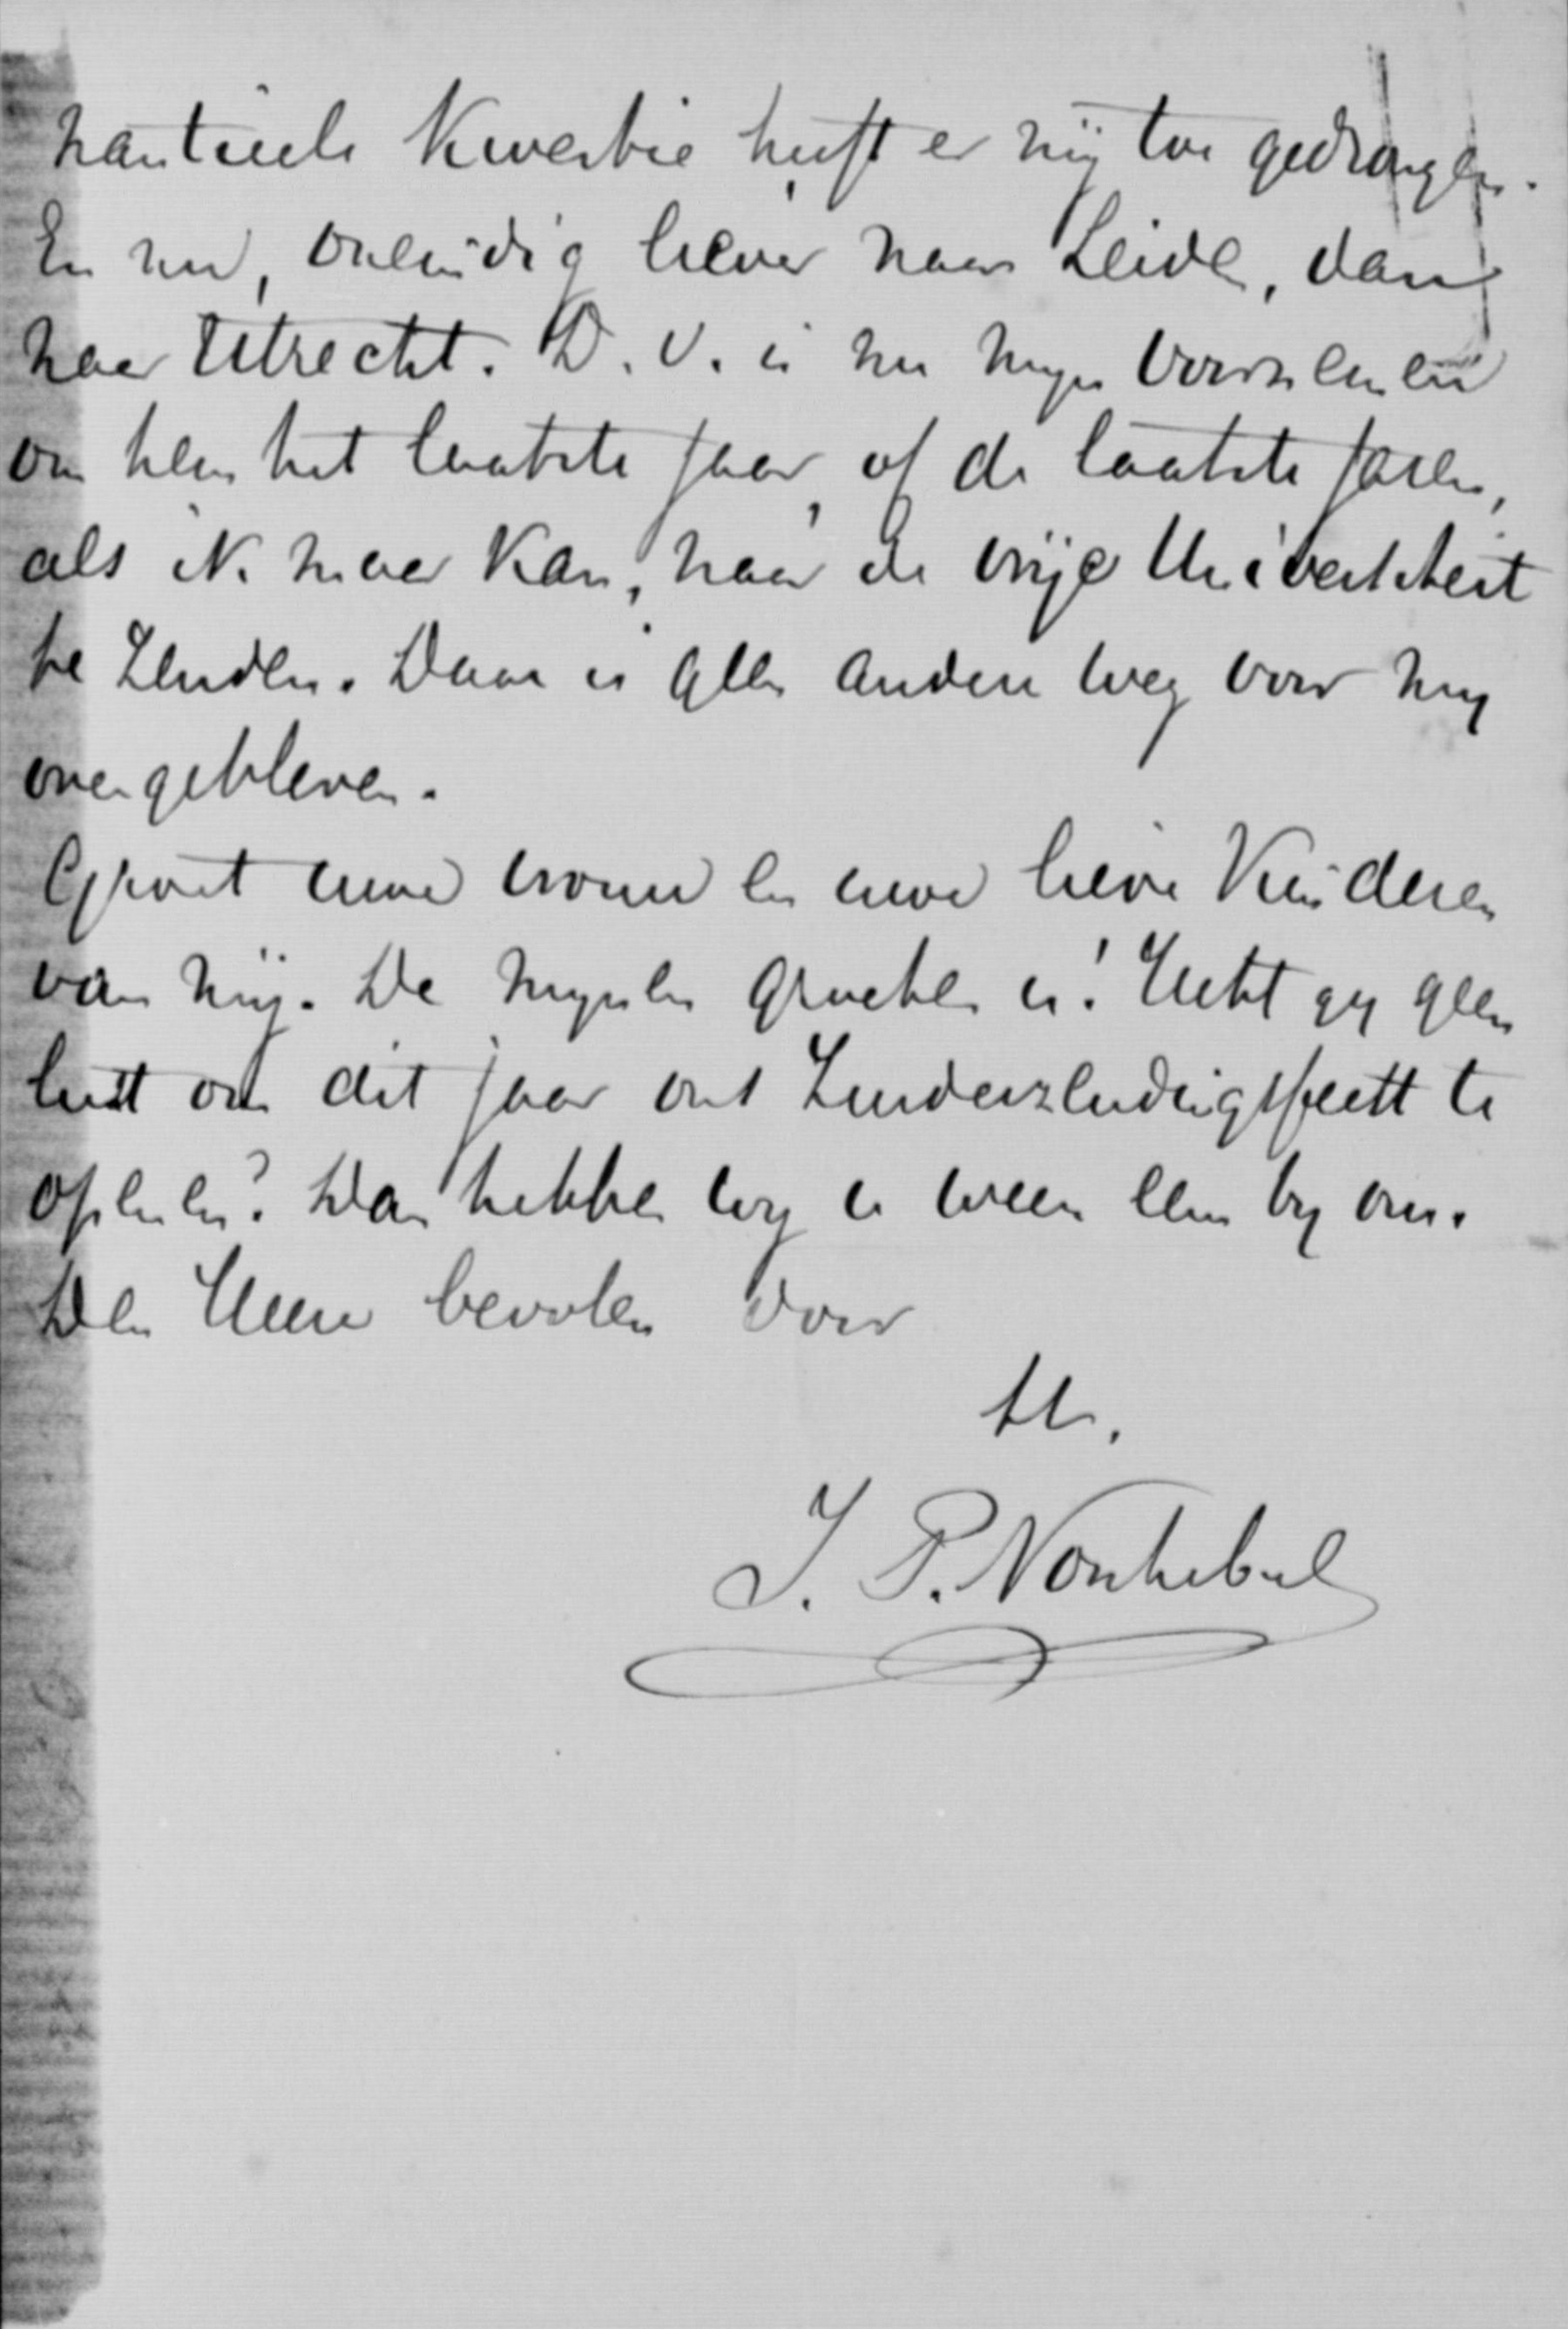 nantieele kwestie heeft er mij toe gedrongen.
En nu, oneindig liever naar Leiden, dan
naar Utrecht. D. V. is nu mijn voornemen
om hem het laatste jaar, of de laatste jaren,
als ik maar kan, naar de vrije Universiteit
te zenden. Daar is geen andere weg voor mij
overgebleven.
Groet uwe vrouw en uwe lieve kinderen
van mij. De mijnen groeten u! Hebt gij geen
lust om dit jaar ons Zunderzendingsfeest te
openen? Dan hebben wij u weer eens bij ons.
Den Heere bevolen door
tt.
J. P. Nonhebel